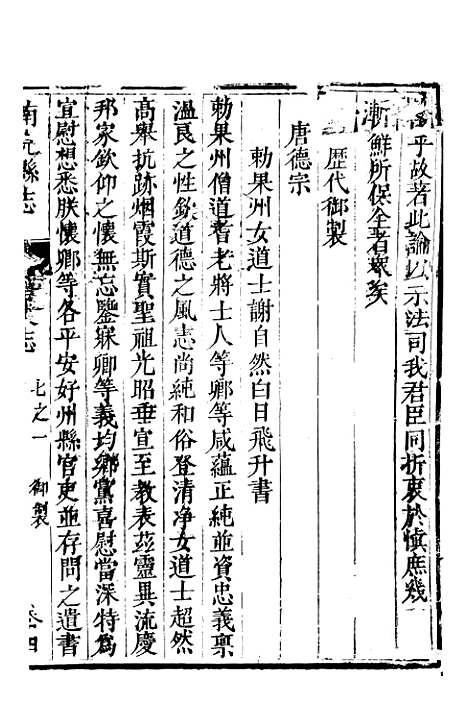 乎故著此論以示法司我君臣同折衷於愼庶幾
漸鮮所保全者衆矣
歷代御製
唐德宗
勅果州女道士謝自然白日飛升書
勅果州僧道耆老將士人等卿等咸蘊正純並資忠義禀
溫良之性欽道德之風志尚純和俗登清净女道士超然
高舉抗跡烟霞斯實聖祖光昭垂宣至教表茲靈異流慶
邦家欽仰之懷無忘鑒寐卿等義均鄉黨喜慰當深特爲
宣慰想悉朕懷卿等各平安好州縣官吏並存問之遺書
南充縣志
藝文志
七之一
御製
卷四